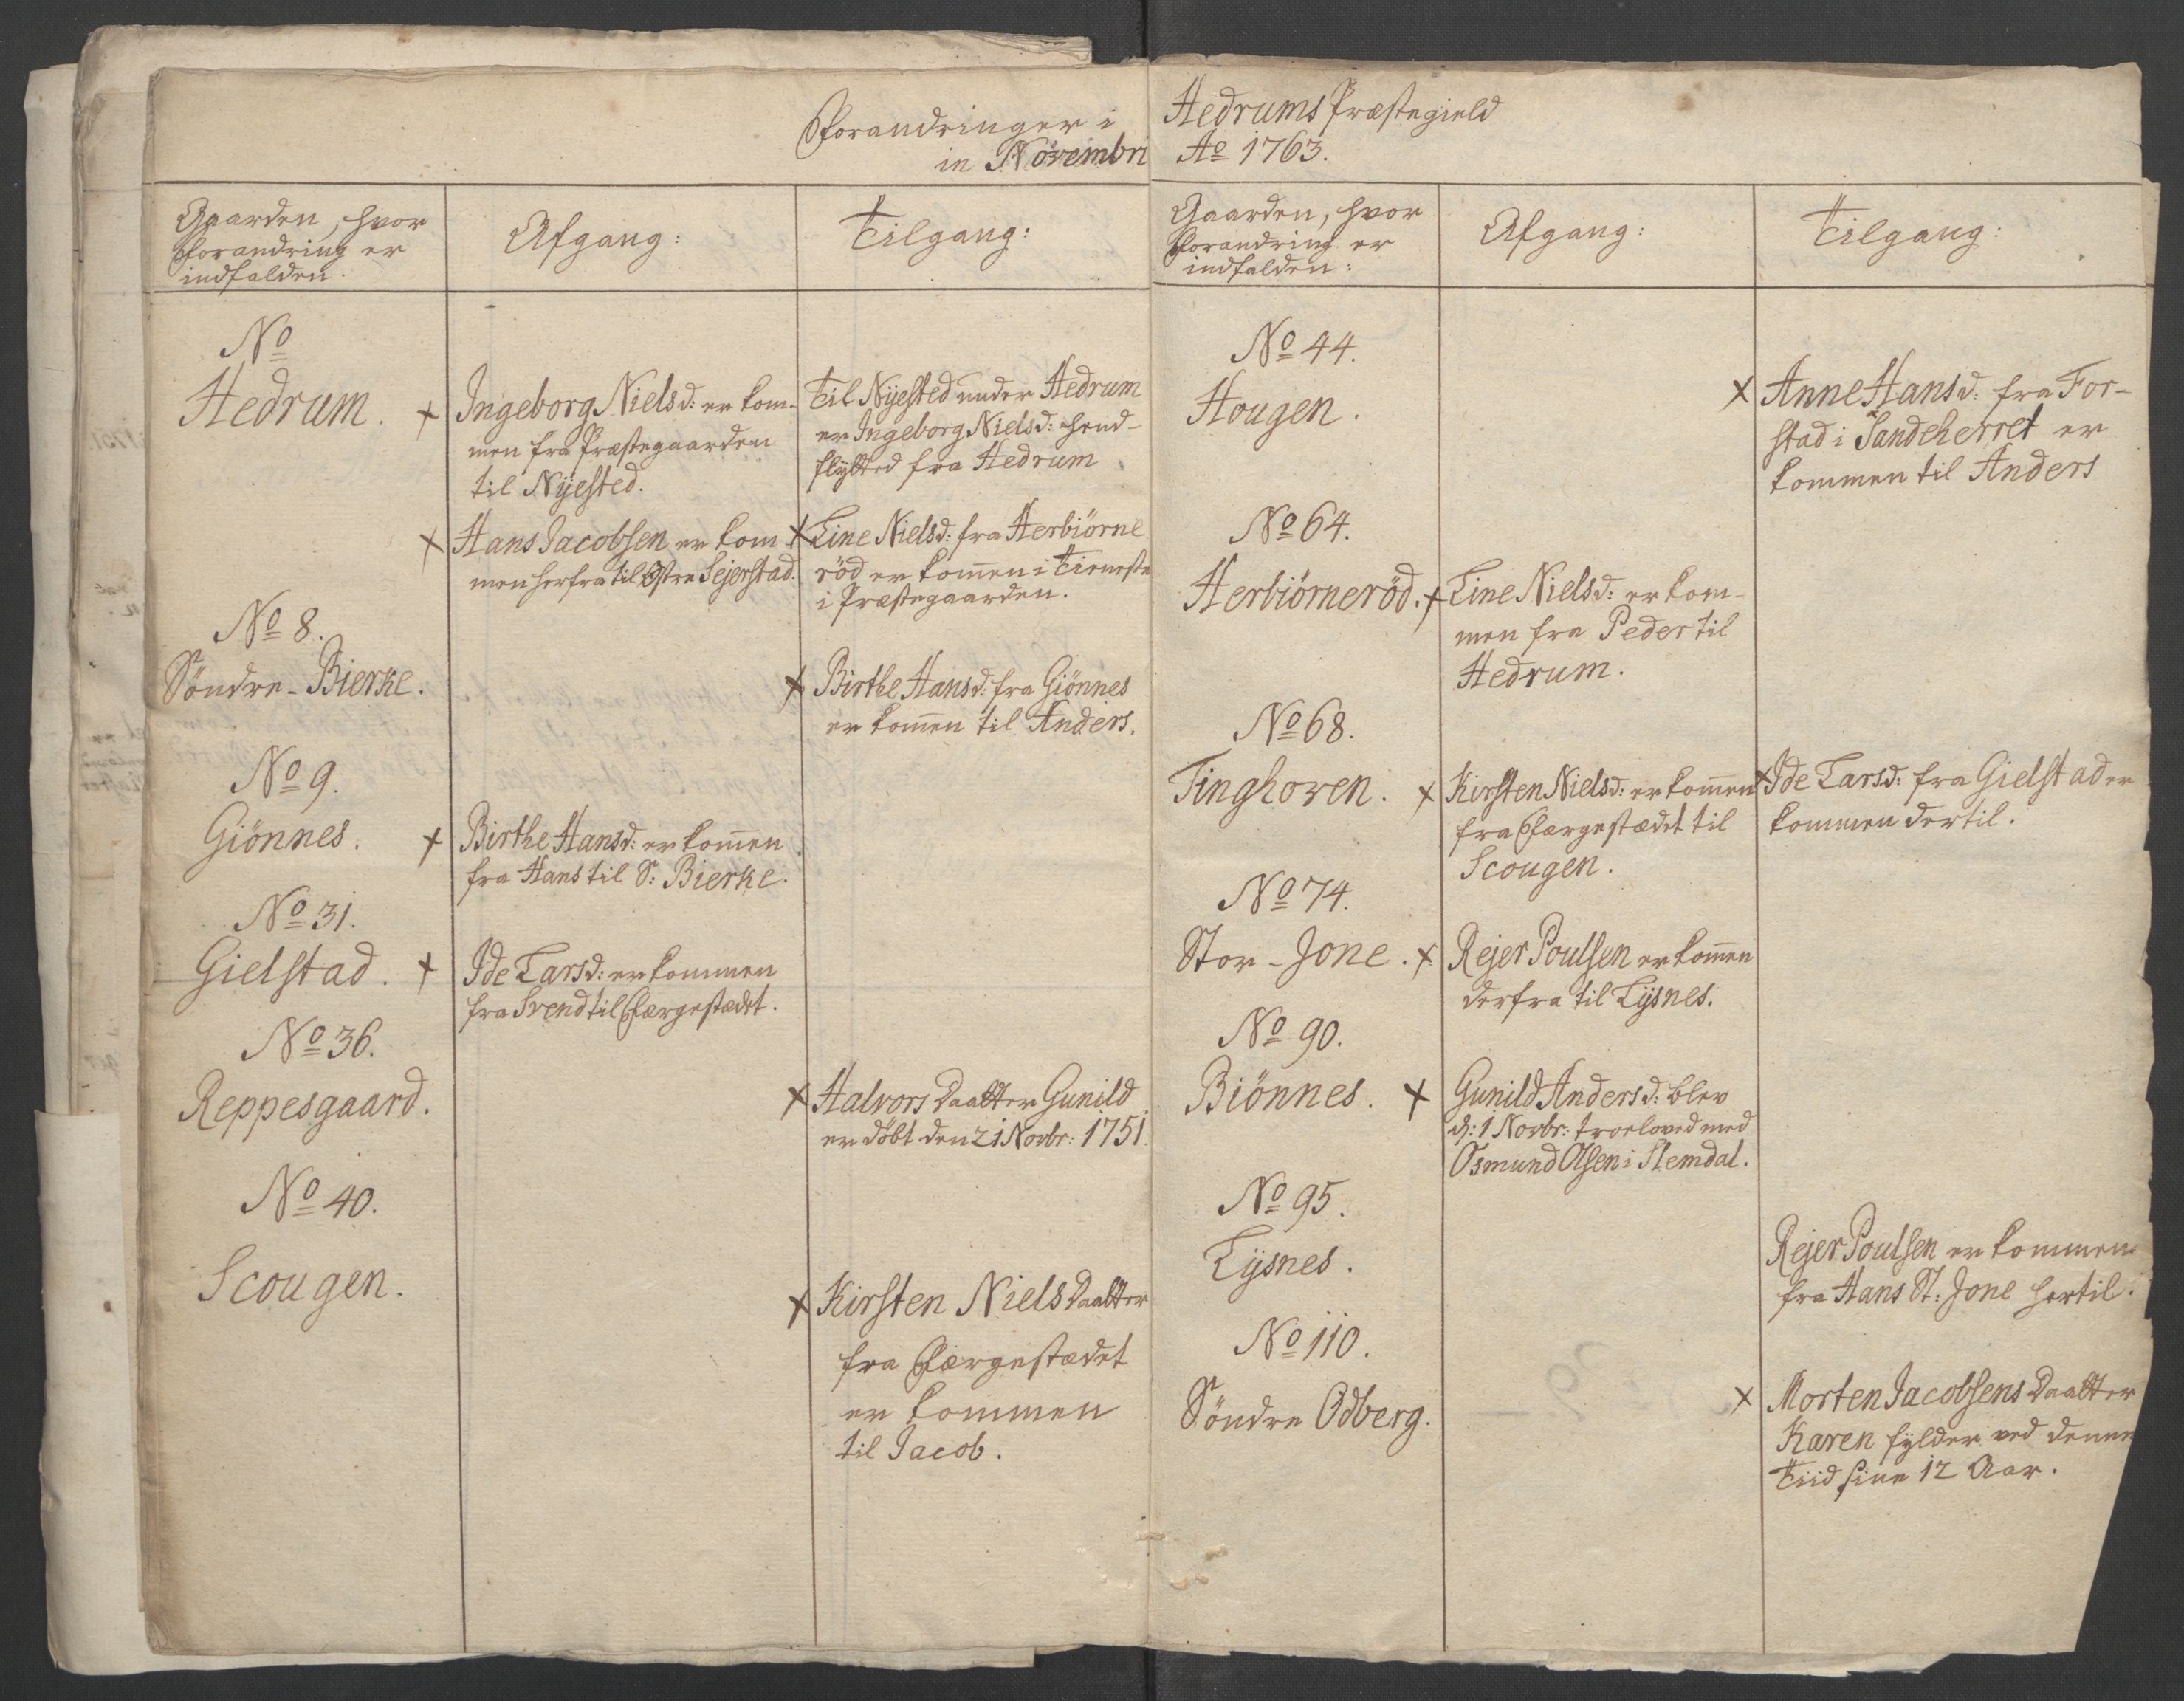 Forandringer i
in Novembri
Gaarden, hvor
Forandring er
indfalden.
Afgang:
Tilgang:
No
Hedrum.
+ Ingeborg Nielsd: er kom-
men fra Præstegaarden
til Nyested.
Til Nyested under Hedrum
er Ingeborg Nielsd: hend-
flytted fra Hedrum
x Hans Jacobsen er kom-
men herfra til Østre Sejerstad.
x Line Nielsd: fra Herbiörne
röd er kommen i Tieneste
i Præstegaarden.
No 8.
Söndre-Bierke.
x Birthe Hansd: fra Giönnes
er kommen til Anders.
No 9.
Giönnes.
+ Birthe Hansd: er kommen
fra Hans til S: Bierke.
No 31.
Gielstad.
+ Ide Larsd: er kommen
fra Svend til Færgestædet.
No 36.
Reppesgaard.
x Halvors Daatter Gunild
er döbt den 21 Novbr: 1751.
No 40.
Scougen.
x Kirsten Niels Daatter
fra Færgestædet
er kommen
til Jacob.
Hedrums Præstegield
Ao 1763.
Gaarden, hvor
Forandring er
indfalden:
Afgang:
Tilgang:
No 44.
Hougen.
x Anne Hansd: fra For-
stad i Sandeherret er
kommen til Anders
No 64.
Herbiörneröd.
+ Line Nielsd: er kom-
men fra Peder til
Hedrum.
No 68.
Tinghoven.
x Kirsten Nielsd: er kommen
fra Færgestædet til
Scougen.
x Ide Larsd: fra Gielstad er
kommen dertil.
No 74.
Stor-Jone.
x Rejer Poulsen er kommen
derfra til Lysnes.
No 90.
Biönnes.
x Gunild Andersd: blev
d: 1 Novbr: troeloved med
Osmund Olsen i Slemdal.
No 95.
Lysnes.
Rejer Poulsen er kommen
fra Hans St: Jone hertil.
No 110.
Söndre Odberg.
x Morten Jacobsens Daatter
Karen fylder ved denne
Tiid sine 12 Aar.